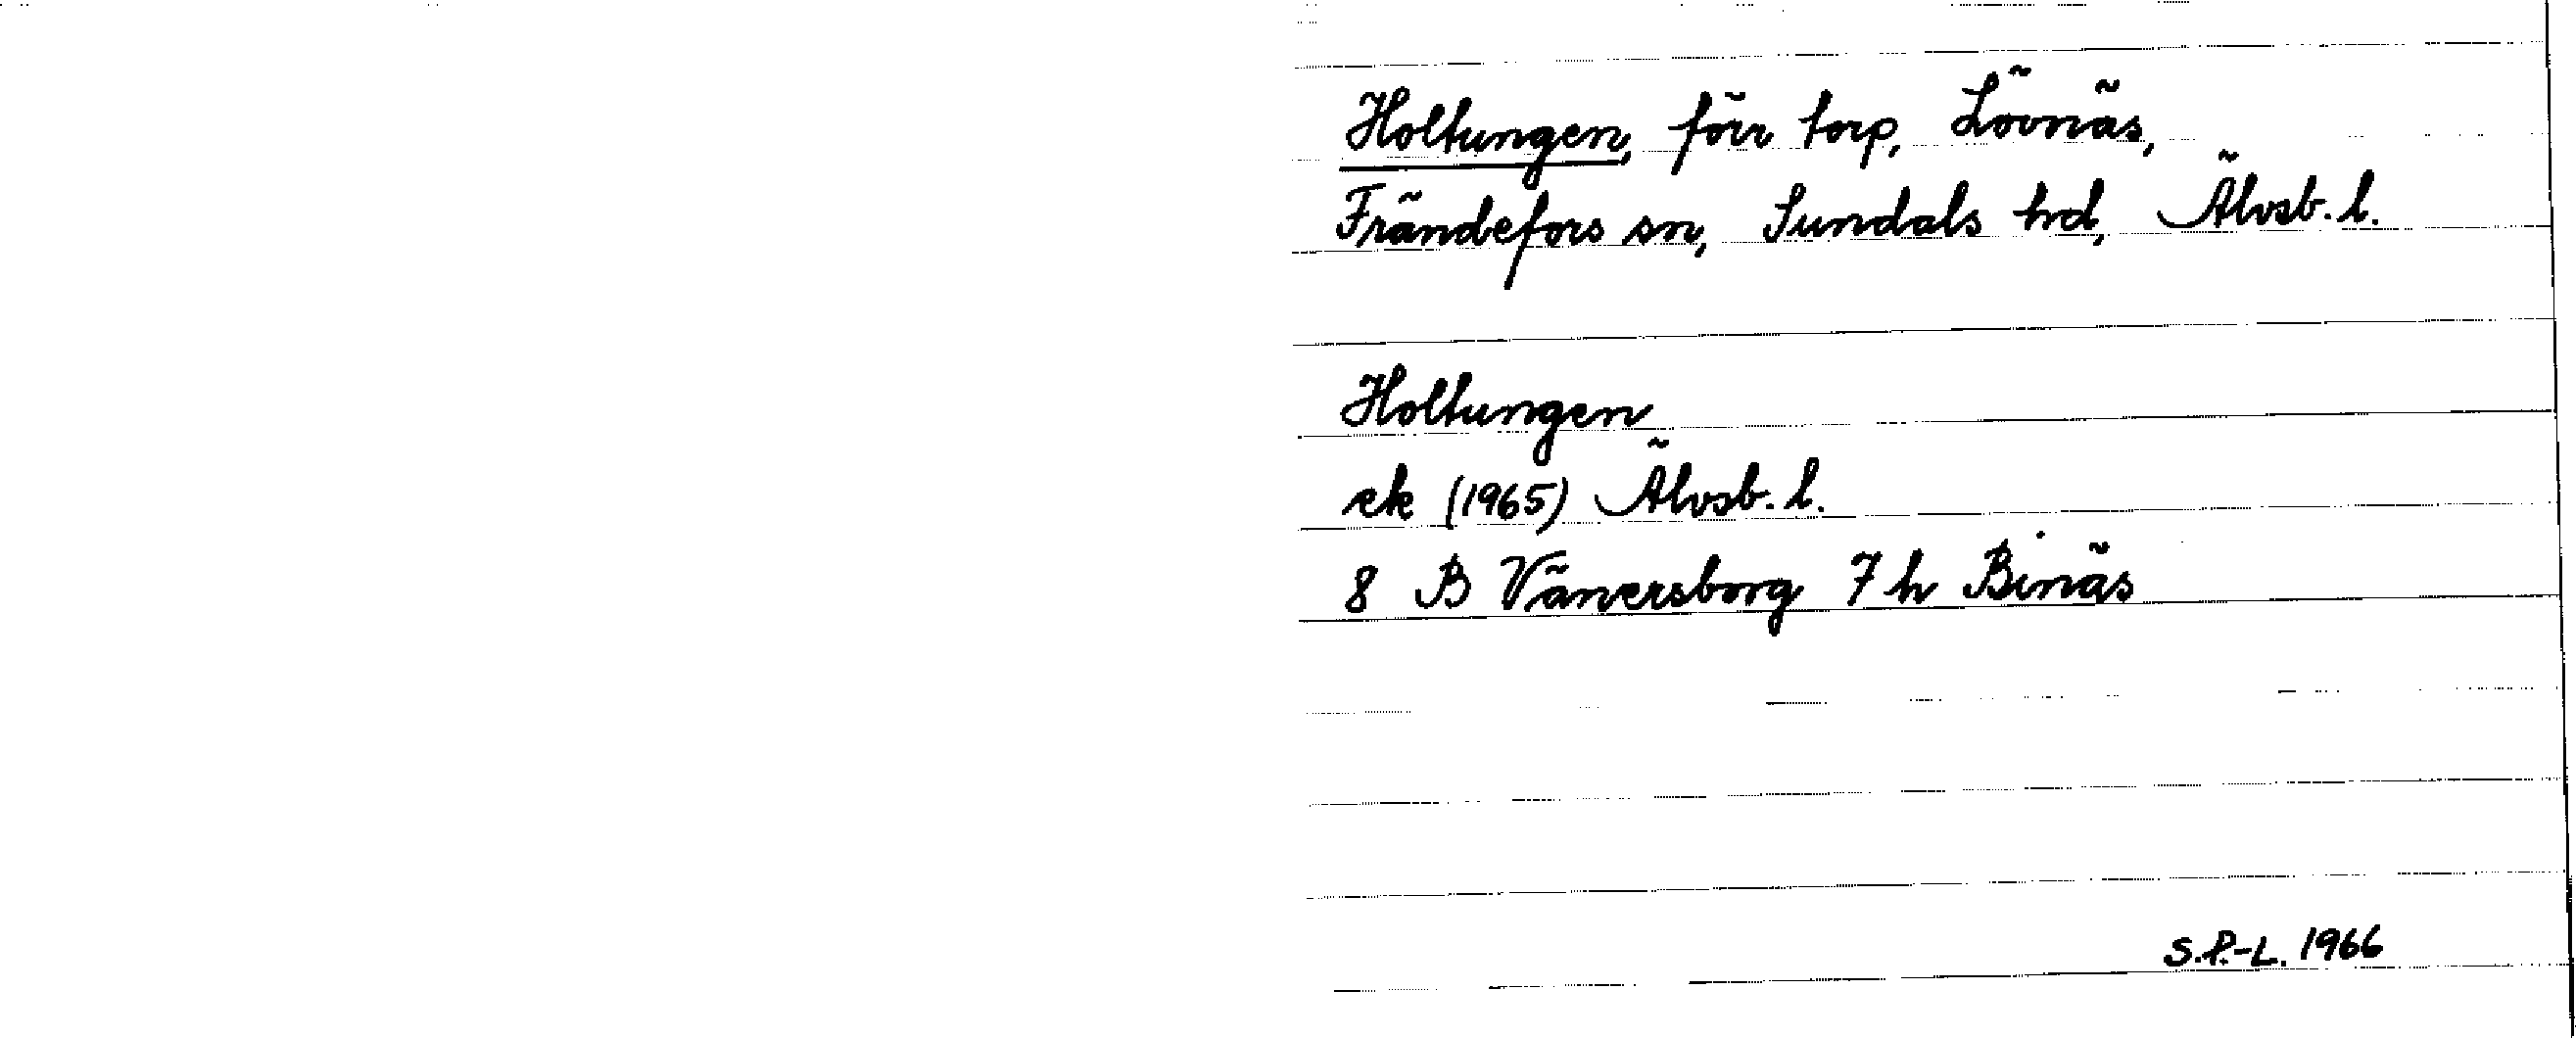 Holtungen, förr torp, Lövnäs,
Frändefors sn, Sundals hd, Älvsb. l.
Holtungen
ek (1965) Älvsb. l.
8 B Vänersborg 7 h Binäs
S.P.-L. 1966